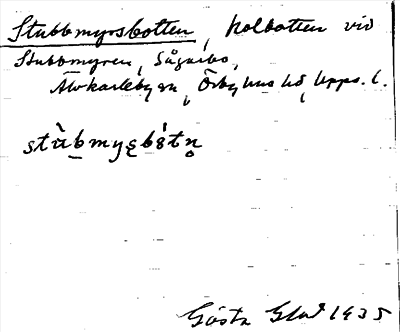 Stubbmyrsbotten, kolbotten vid
Stubbmyren, Sågarbo,
Älvkarleby sn, Örbyhus hd, Upps. l.
stùb̲myʂbó̤tn̥
Gösta 1935